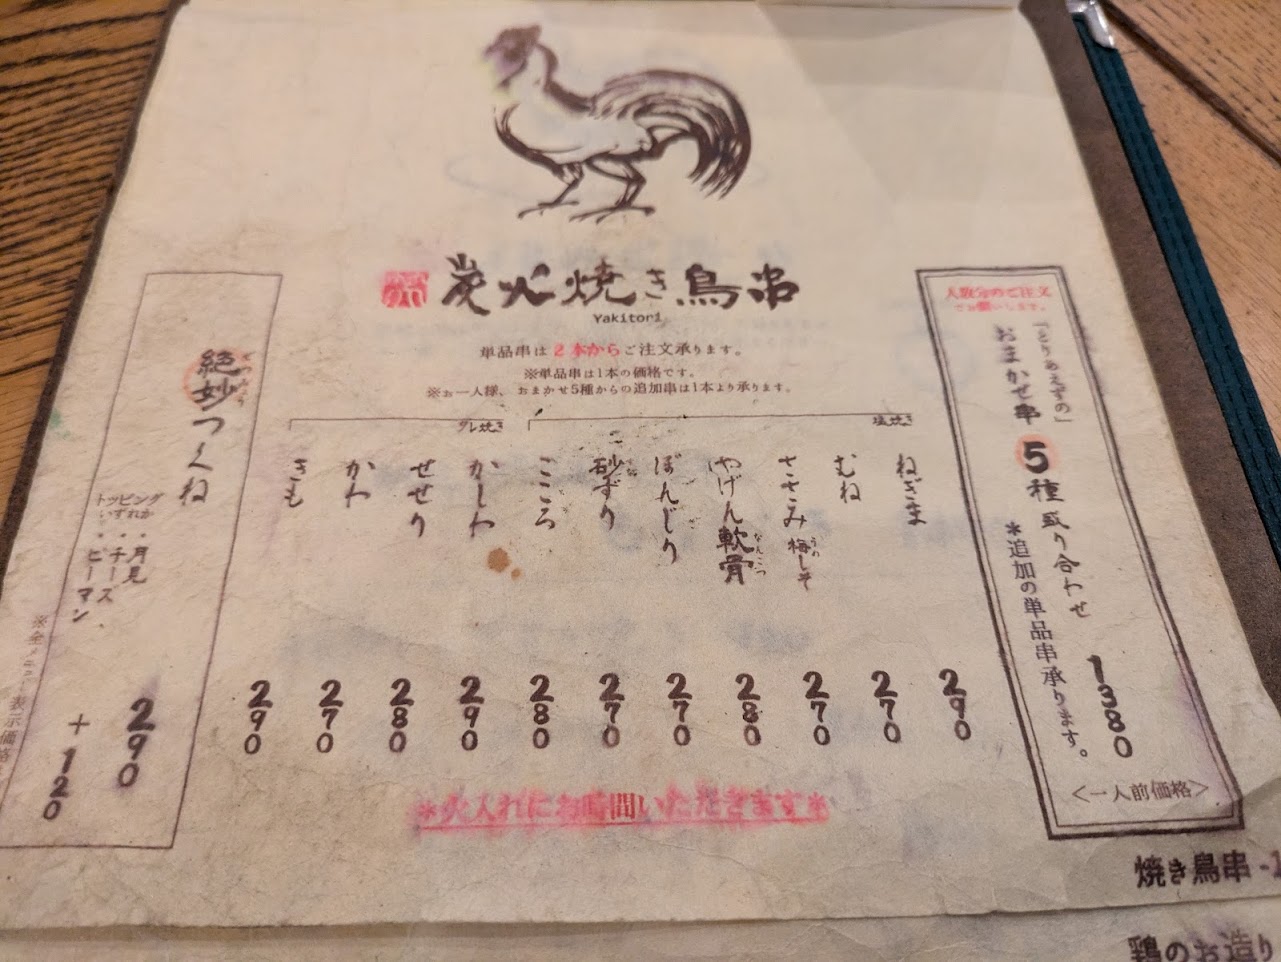 炭火焼き鳥串
Yakitori
単品串は2本からご注文承ります。
※単品串は1本の価格です。
※お一人様、おまかせ5種からの追加串は1本より承ります。
人数分のご注文
でお願いします。
『とりあえずの』
おまかせ串5種盛り合わせ
1380
*追加の単品串承ります。
<一人前価格>
塩焼き
ねぎま 290
むね 270
ささみ梅しそ 270
やげん軟骨 280
ぼんじり 270
砂ずり 270
こころ 280
タレ焼き
かしわ 290
せせり 280
かわ 270
きも 290
絶妙つくね 290
トッピング
いずれか
・月見
・チーズ
・ピーマン
+120
*火入れにお時間いただきます*
焼き鳥串
鶏のお造り